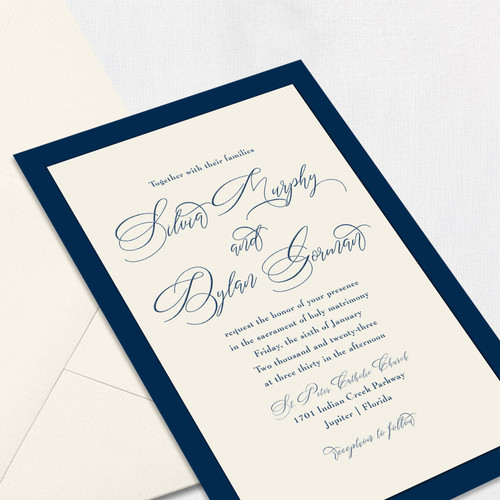 Together with their families
Silvia Murphy
and
Dylan Gorman
request the honor of your presence
in the sacrament of holy matrimony
Friday, the sixth of January
Two thousand and twenty-three
at three thirty in the afternoon
St Peter Catholic Church
1701 Indian Creek Parkway
Jupiter | Florida
reception to follow